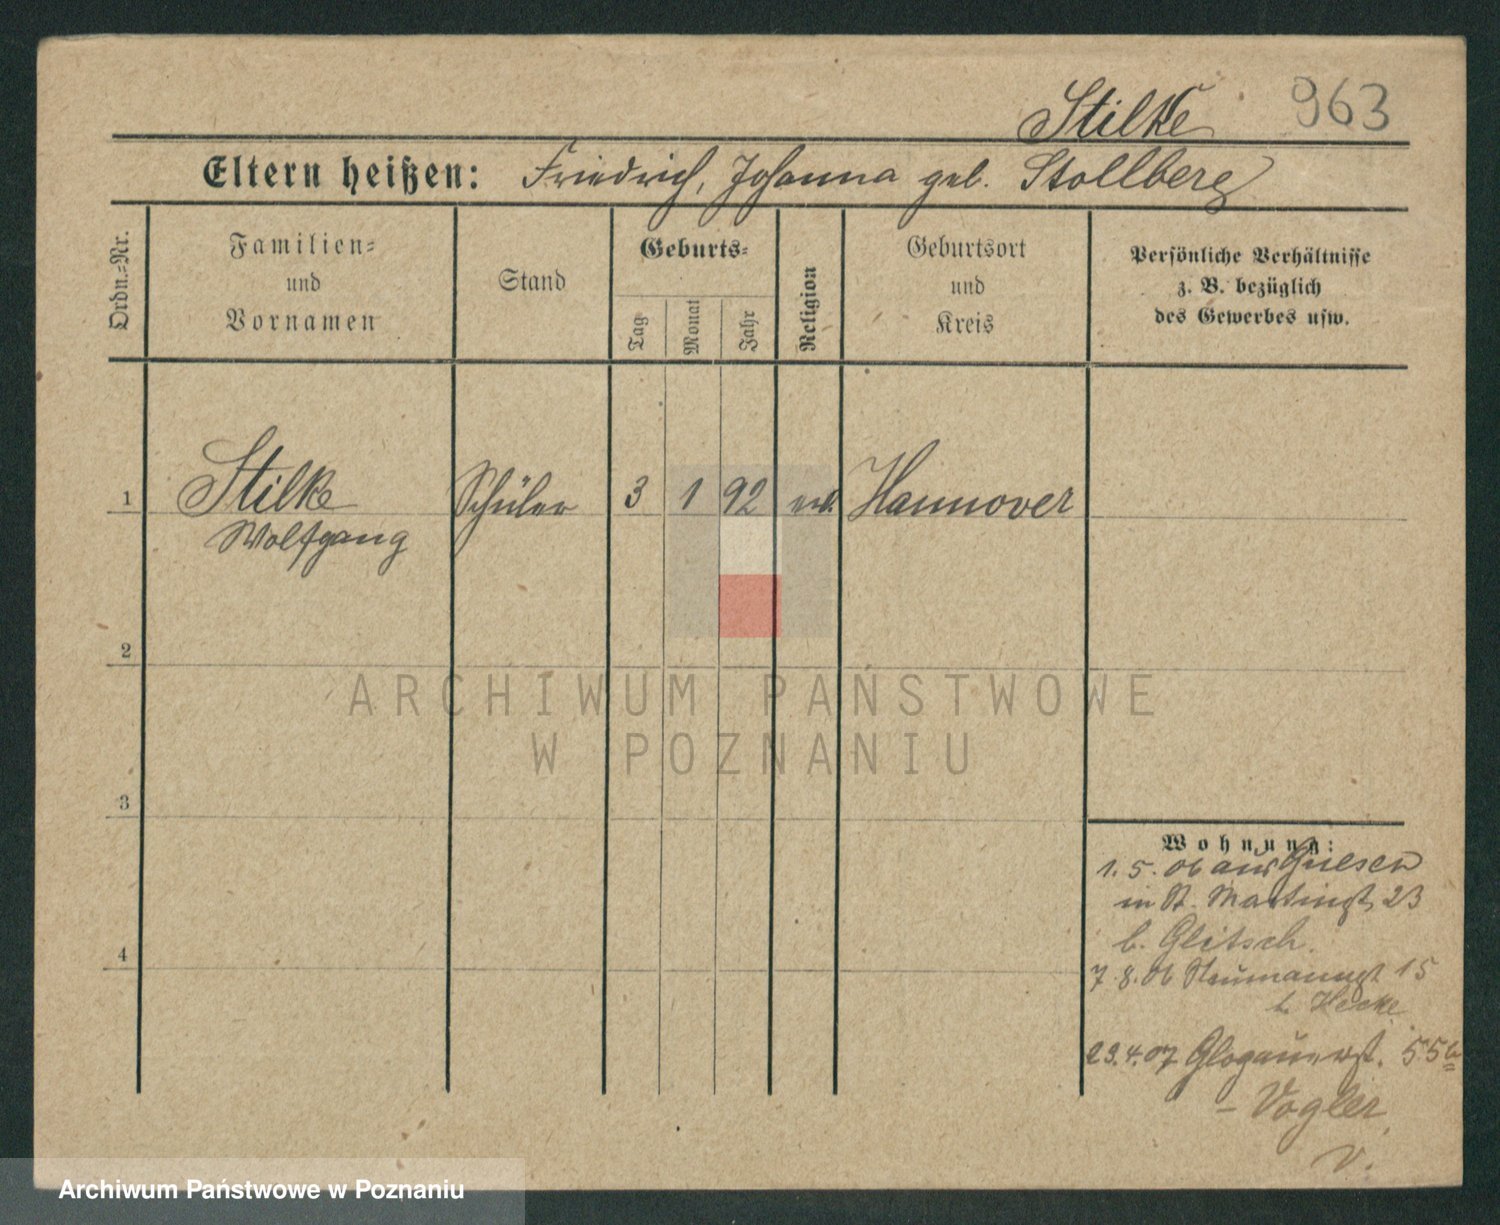 Stilke 963
Eltern heißen: Friedrich, Johanna geb. Stollberg
Ordn.-Nr.
Familien-
und
Vornamen
Stand
Geburts-
Tag
Monat
Jahr
Religion
Geburtsort
und
Kreis
Persönliche Verhältnisse
z. B. bezüglich
des Gewerbes usw.
1 Stilke Schüler 3 1 92 Hannover
Wolfgang
2
3
4
Wohnung:
1. 5. 06 aus Gnesen
in St. Martinst. 23
b. Glitsch.
7. 8. 06 Naumannst 15
b. Hecke
23. 4. 07 Glogauerst. 55
- Vogler
v.
ARCHIWUM PAŃSTWOWE
W POZNANIU
Archiwum Państwowe w Poznaniu